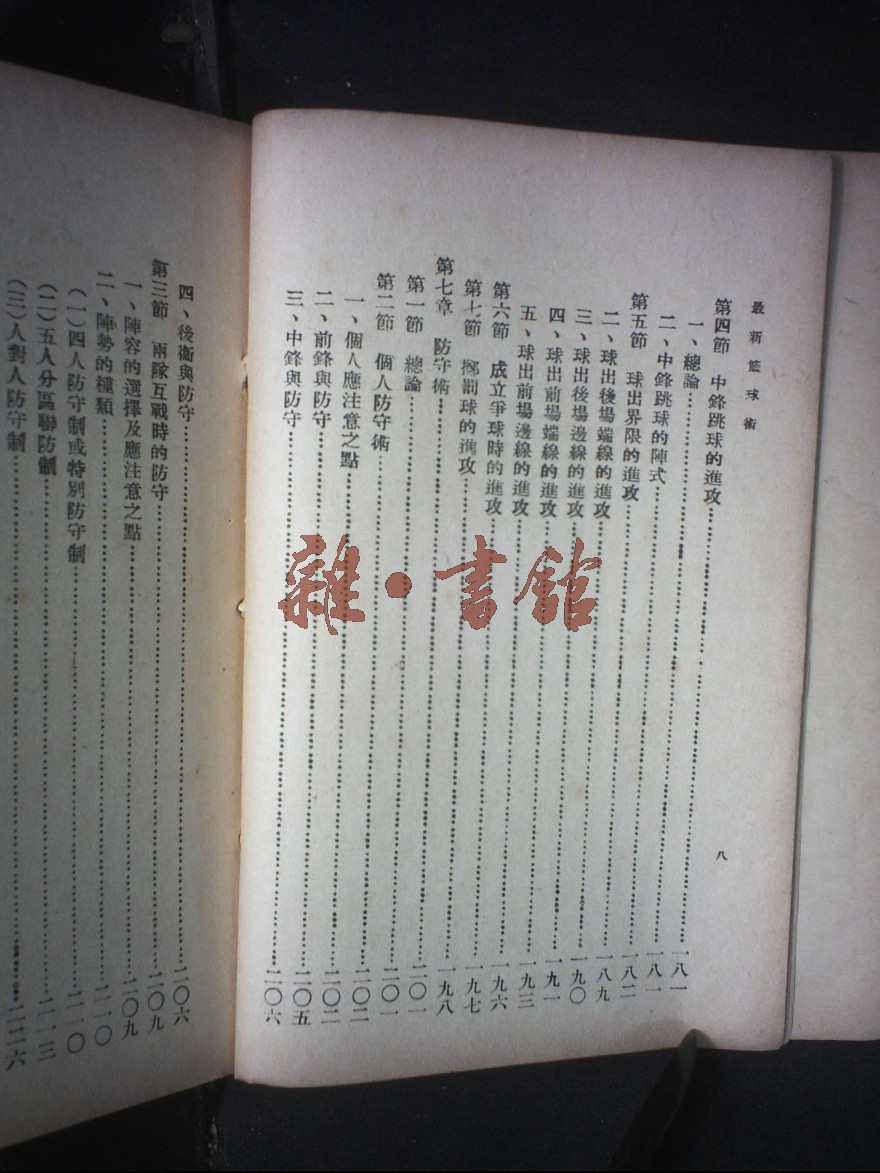 最新籃球術
八
第四節 中鋒跳球的進攻……一八一
一、總論……一八一
二、中鋒跳球的陣式……一八二
第五節 球出界限的進攻……一八九
二、球出後場端線的進攻……一九〇
三、球出後場邊線的進攻……一九一
四、球出前場端線的進攻……一九三
五、球出前場邊線的進攻……一九六
第六節 成立爭球時的進攻……一九七
第七節 擲罰球的進攻……一九八
第七章 防守術……二〇一
第一節 總論……二〇一
第二節 個人防守術……二〇二
一、個人應注意之點……二〇二
二、前鋒與防守……二〇五
三、中鋒與防守……二〇六
四、後衛與防守……二〇六
第三節 兩隊互戰時的防守……二〇九
一、陣容的選擇及應注意之點……二〇九
二、陣勢的種類……二一〇
(一)四人防守制或特別防守制……二一〇
(二)五人分區聯防制……二一三
(三)人對人防守制……二二六
雜·書館